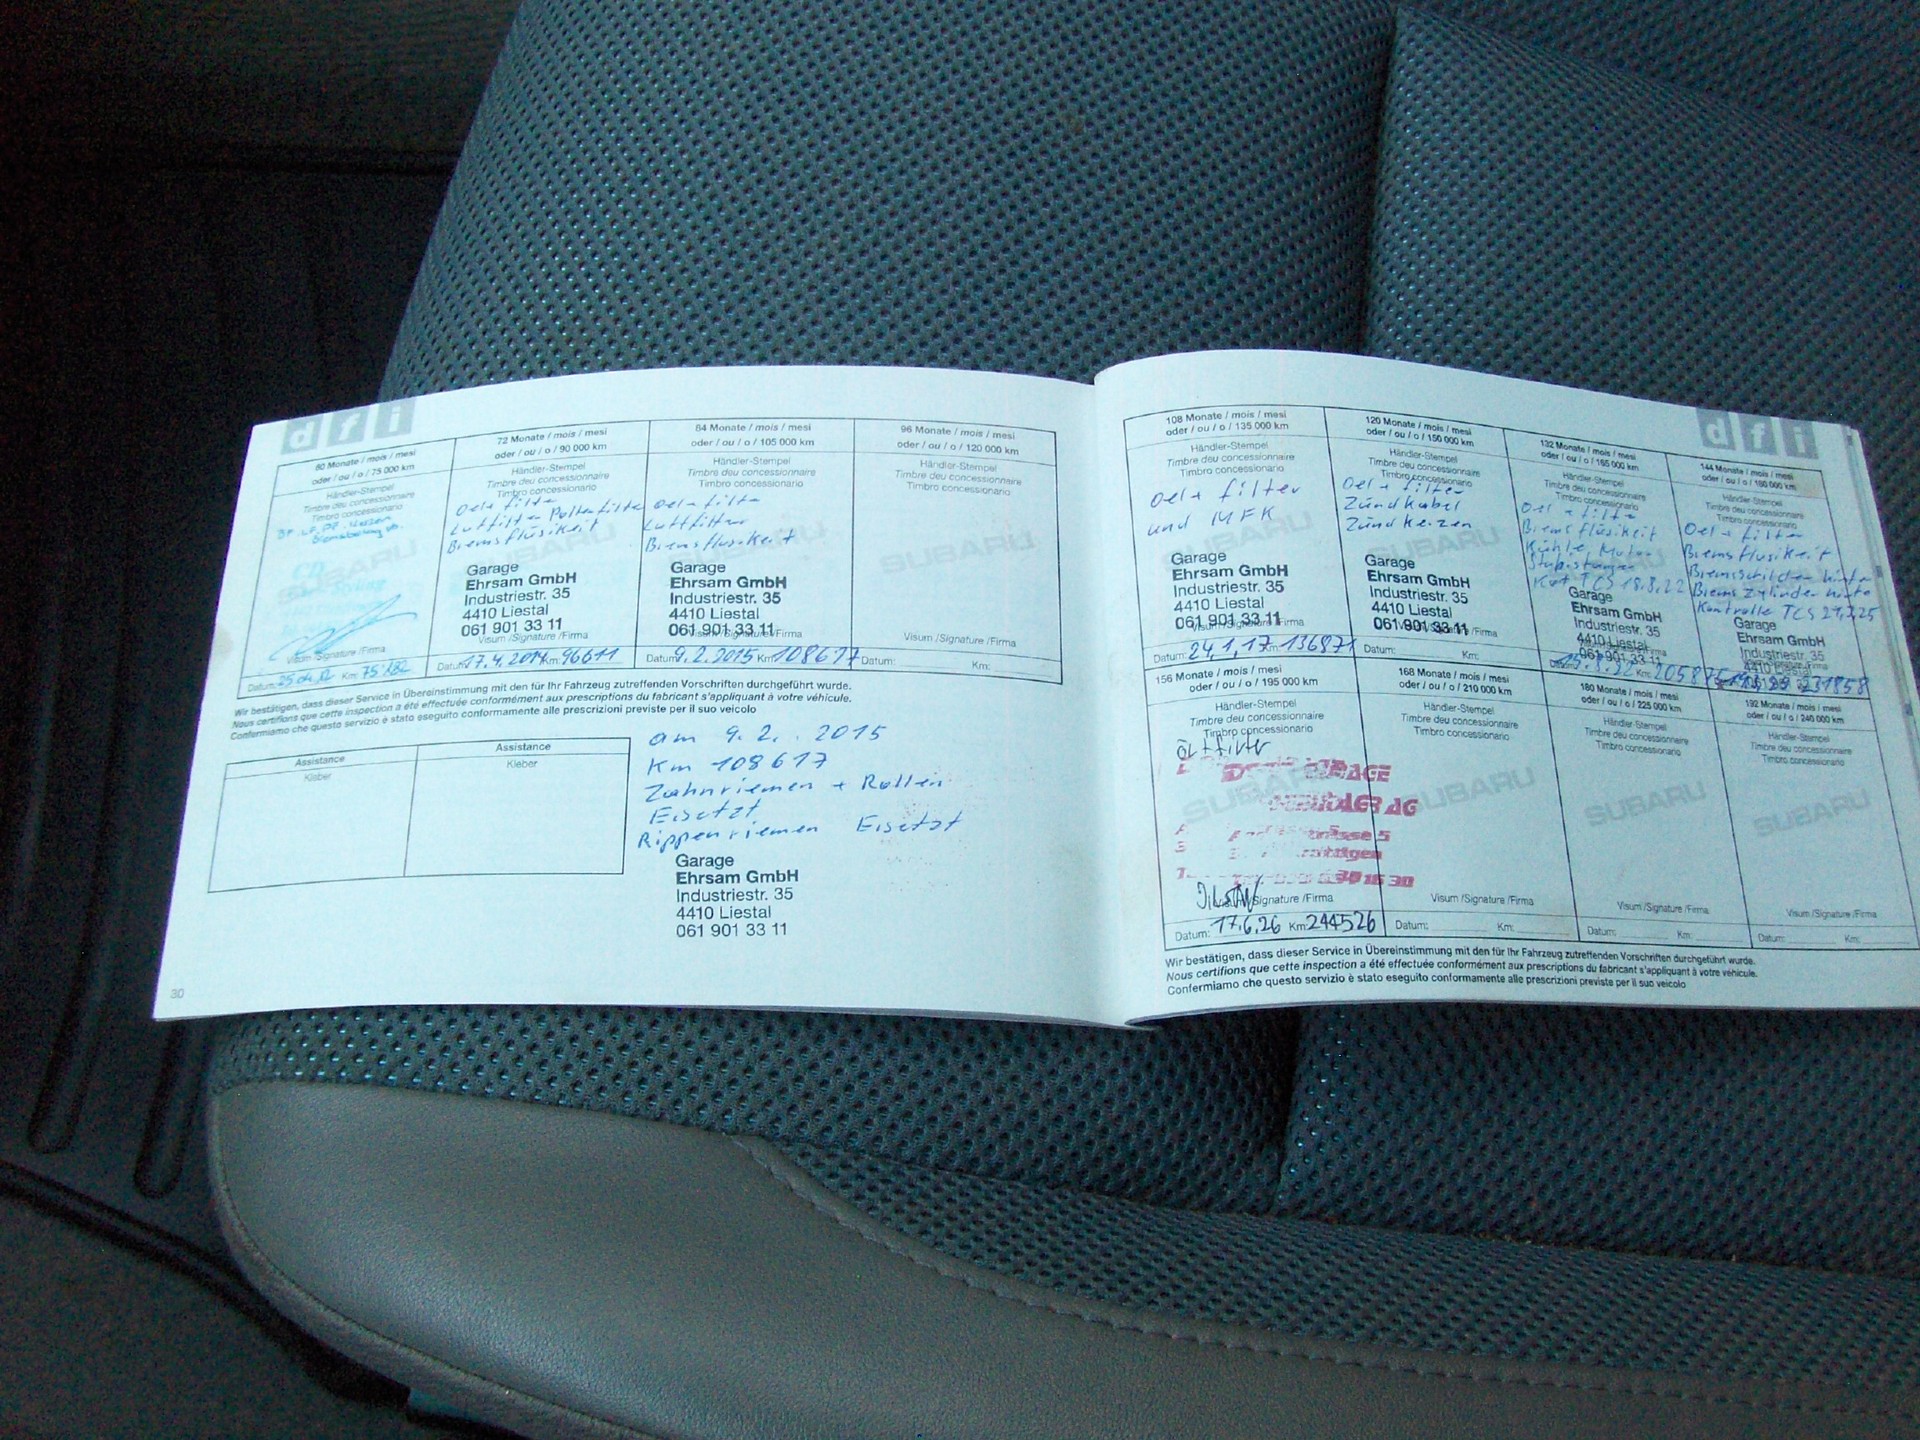 dfi
60 Monate / mois / mesi
oder / ou / o / 75 000 km
Händler-Stempel
Timbre deu concessionnaire
Timbro concessionario
SUBARU
Visum /Signature /Firma
Datum: 25.04.12 Km: 75'182
72 Monate / mois / mesi
oder / ou / o / 90 000 km
Händler-Stempel
Timbre deu concessionnaire
Timbro concessionario
Oel + filter
Luftfilter Pollenfilter
Bremsflüsikeit
SUBARU
Garage
Ehrsam GmbH
Industriestr. 35
4410 Liestal
061 901 33 11
Visum /Signature /Firma
Datum: 17.4.2014 Km: 96611
84 Monate / mois / mesi
oder / ou / o / 105 000 km
Händler-Stempel
Timbre deu concessionnaire
Timbro concessionario
Oel + filter
Luftfilter
Bremsflusikeit
SUBARU
Garage
Ehrsam GmbH
Industriestr. 35
4410 Liestal
061 901 33 11
Visum /Signature /Firma
Datum: 9.2.2015 Km: 108617
96 Monate / mois / mesi
oder / ou / o / 120 000 km
Händler-Stempel
Timbre deu concessionnaire
Timbro concessionario
SUBARU
Visum /Signature /Firma
Datum: Km:
Wir bestätigen, dass dieser Service in Übereinstimmung mit den für Ihr Fahrzeug zutreffenden Vorschriften durchgeführt wurde.
Nous certifions que cette inspection a été effectuée conformément aux prescriptions du fabricant s'appliquant à votre véhicule.
Confermiamo che questo servizio è stato eseguito conformamente alle prescrizioni previste per il suo veicolo
Assistance
Kleber
Assistance
Kleber
am 9.2.2015
Km 108617
Zahnriemen + Rollen
Eisetzt
Rippenriemen Eisetzt
Garage
Ehrsam GmbH
Industriestr. 35
4410 Liestal
061 901 33 11
30
dfi
108 Monate / mois / mesi
oder / ou / o / 135 000 km
Händler-Stempel
Timbre deu concessionnaire
Timbro concessionario
Oel + filter
und MFK
SUBARU
Garage
Ehrsam GmbH
Industriestr. 35
4410 Liestal
061 901 33 11
Visum /Signature /Firma
Datum: 24.1.17 Km: 136871
120 Monate / mois / mesi
oder / ou / o / 150 000 km
Händler-Stempel
Timbre deu concessionnaire
Timbro concessionario
Oel + filter
Zündkabel
Zündkerzen
SUBARU
Garage
Ehrsam GmbH
Industriestr. 35
4410 Liestal
061 901 33 11
Visum /Signature /Firma
Datum: Km:
132 Monate / mois / mesi
oder / ou / o / 165 000 km
Händler-Stempel
Timbre deu concessionnaire
Timbro concessionario
Oel + filter
Bremsflüsikeit
TCS 18.8.22
Garage
Ehrsam GmbH
Industriestr. 35
4410 Liestal
061 901 33 11
144 Monate / mois / mesi
oder / ou / o / 180 000 km
Händler-Stempel
Timbre deu concessionnaire
Timbro concessionario
Oel + filter
Bremsflusikeit
Brems Zylinder
Kontrolle TCS
Garage
Ehrsam GmbH
Industriestr. 35
4410 Liestal
231858
156 Monate / mois / mesi
oder / ou / o / 195 000 km
Händler-Stempel
Timbre deu concessionnaire
Timbro concessionario
SUBARU
GARAGE
AG
Visum /Signature /Firma
Datum: 17.6.26 Km: 244526
168 Monate / mois / mesi
oder / ou / o / 210 000 km
Händler-Stempel
Timbre deu concessionnaire
Timbro concessionario
SUBARU
Visum /Signature /Firma
Datum: Km:
180 Monate / mois / mesi
oder / ou / o / 225 000 km
Händler-Stempel
Timbre deu concessionnaire
Timbro concessionario
SUBARU
Visum /Signature /Firma
Datum: Km:
192 Monate / mois / mesi
oder / ou / o / 240 000 km
Händler-Stempel
Timbre deu concessionnaire
Timbro concessionario
SUBARU
Visum /Signature /Firma
Datum: Km:
Wir bestätigen, dass dieser Service in Übereinstimmung mit den für Ihr Fahrzeug zutreffenden Vorschriften durchgeführt wurde.
Nous certifions que cette inspection a été effectuée conformément aux prescriptions du fabricant s'appliquant à votre véhicule.
Confermiamo che questo servizio è stato eseguito conformamente alle prescrizioni previste per il suo veicolo